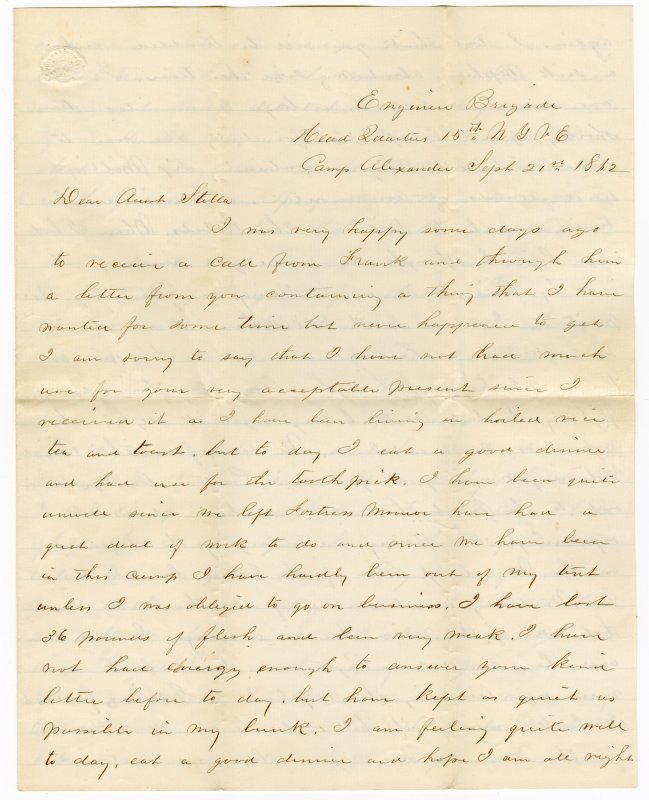 Engineer Brigade
Head Quarters 15th N Y V E
Camp Alexander Sept 21st 1862
Dear Aunt Stella
I was very happy some days ago
to receive a call from Frank and through him
a letter from you containing a thing that I have
wanted for some time but never happened to get
I am sorry to say that I have not had much
use for your very acceptable present since I
received it as I have been living on boiled rice
tea and toast. but to day I eat a good dinner
and had use for the tooth pick. I have been quite
unwell since we left Fortress Monroe have had a
great deal of work to do and since we have been
in this camp I have hardly been out of my tent
unless I was obliged to go on business. I have lost
36 pounds of flesh and been very weak. I have
not had energy enough to answer your kind
letter before to day. but have kept as quiet as
possible in my bunk. I am feeling quite well
to day, eat a good dinner and hope I am all right